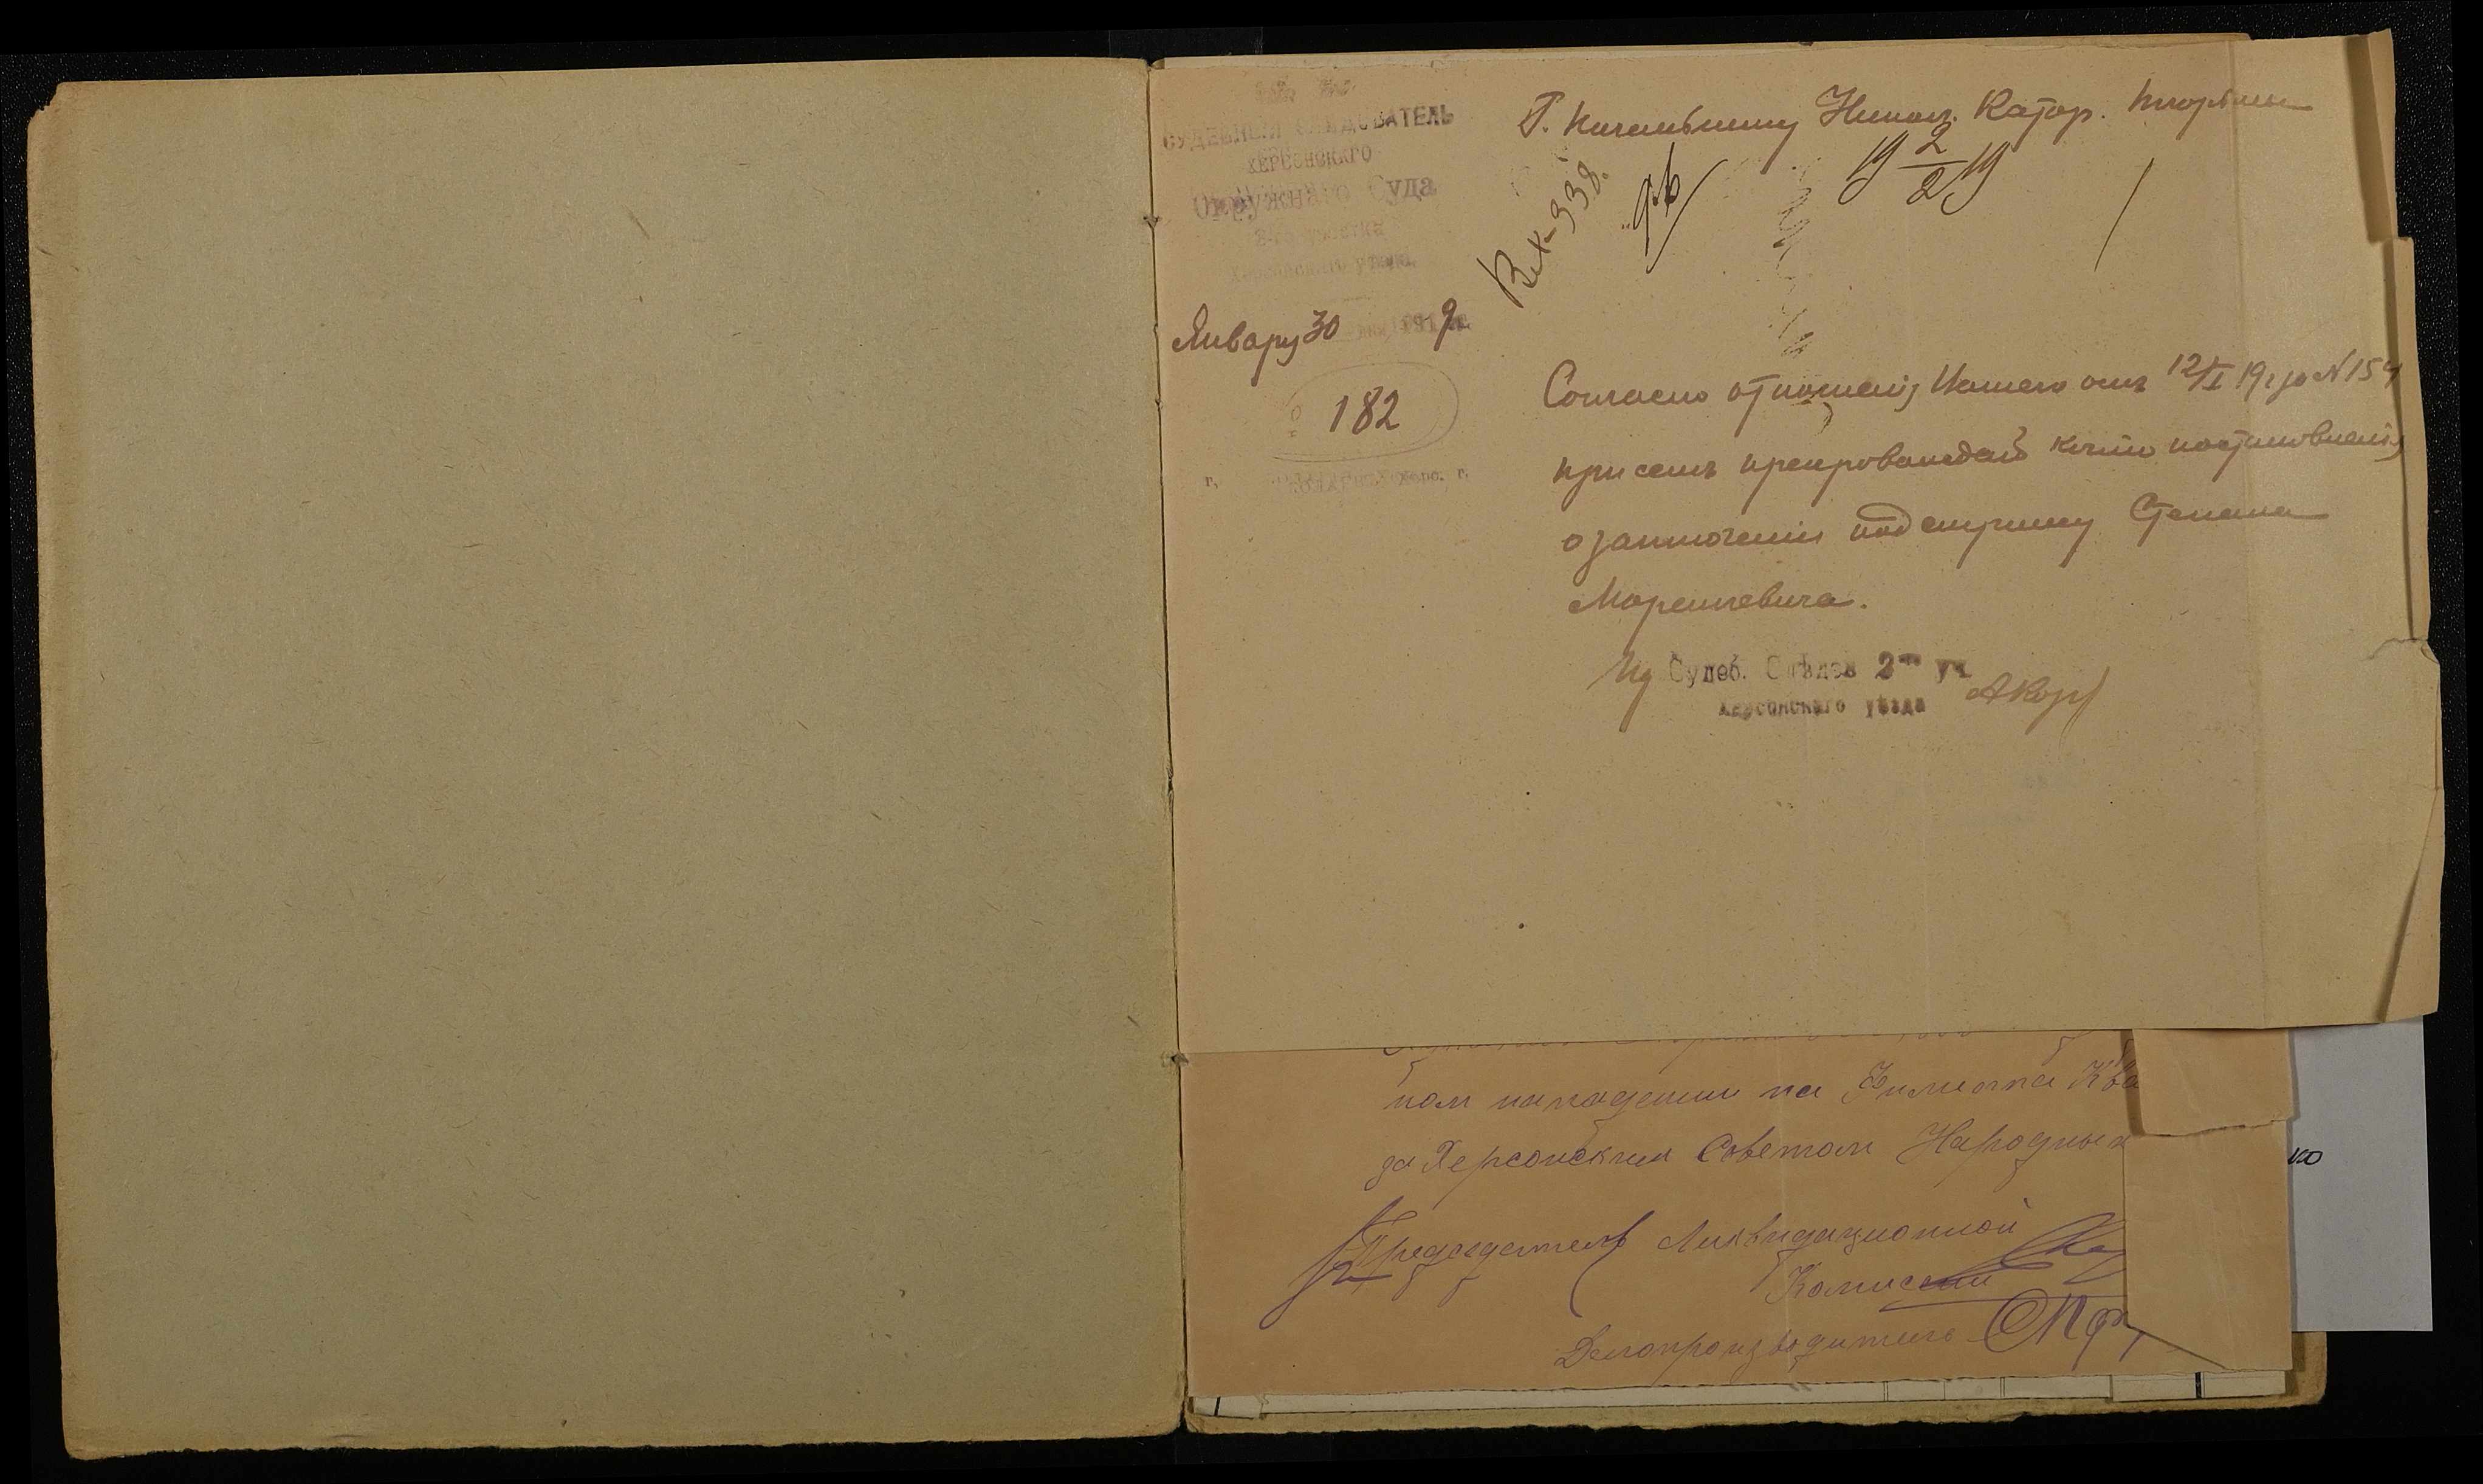 СУДЕБНЫЙ СЛѢДОВАТЕЛЬ
ХЕРСОНСКАГО
Окружнаго Суда
2-го участка
Херсонскаго уѣзда
Январу 30 1919 г.
182
г.
Г. Начальнику Никол. Катор. тюрьмы
Вх-938.
19 2/2 19
Согласно отношенія Вашего отъ 12/I 19 г за N 159
при семъ препровождаю копію постановленія
о заключеніи под стражу Степана
Ид Судеб. Слѣдов 2го уч
Херсонскаго уѣзда
ном нападении на Филиппа
да Херсонским Советом Народных
Председатель Ликвидационной
Комиссии
Делопроизводитель
ко